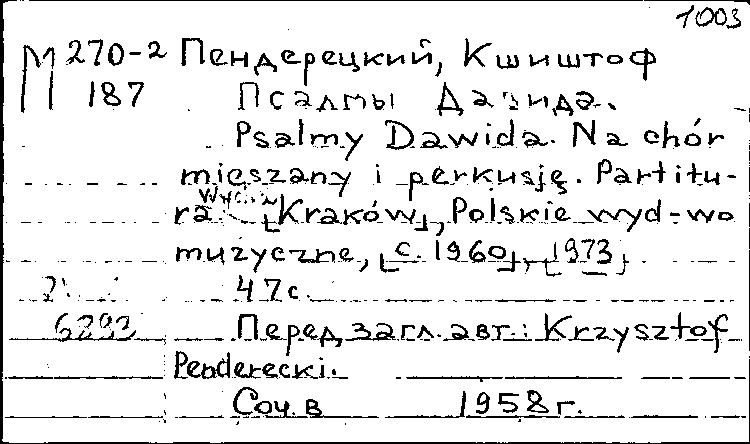 1003
М 270-2 Пендерецкий, Кшиштоф
187 Псалмы Давида.
Psalmy Dawida. Na chór
mieszany i perkusję. Partitu-
ra [Kraków], Polskie wyd-wo
muzyczne, [c. 1960], [1973].
47с.
6293 Перед загл. авт.: Krzysztof
Penderecki.
Соч. в 1958 г.